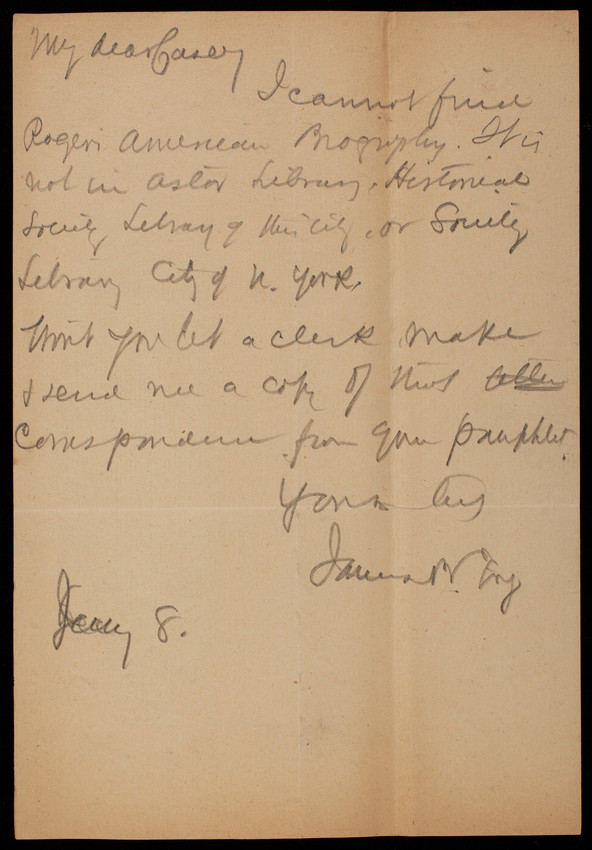 My dear Casey
I cannot find
Rogers American Biography. It is
not in Astor Library, Historical
Society Library of this city, or Society
Library City of N. York.
Won't you let a clerk make
& send me a copy of that letter
Correspondence from your pamphlet.
Yours truly
James B Fry
Jany 8.